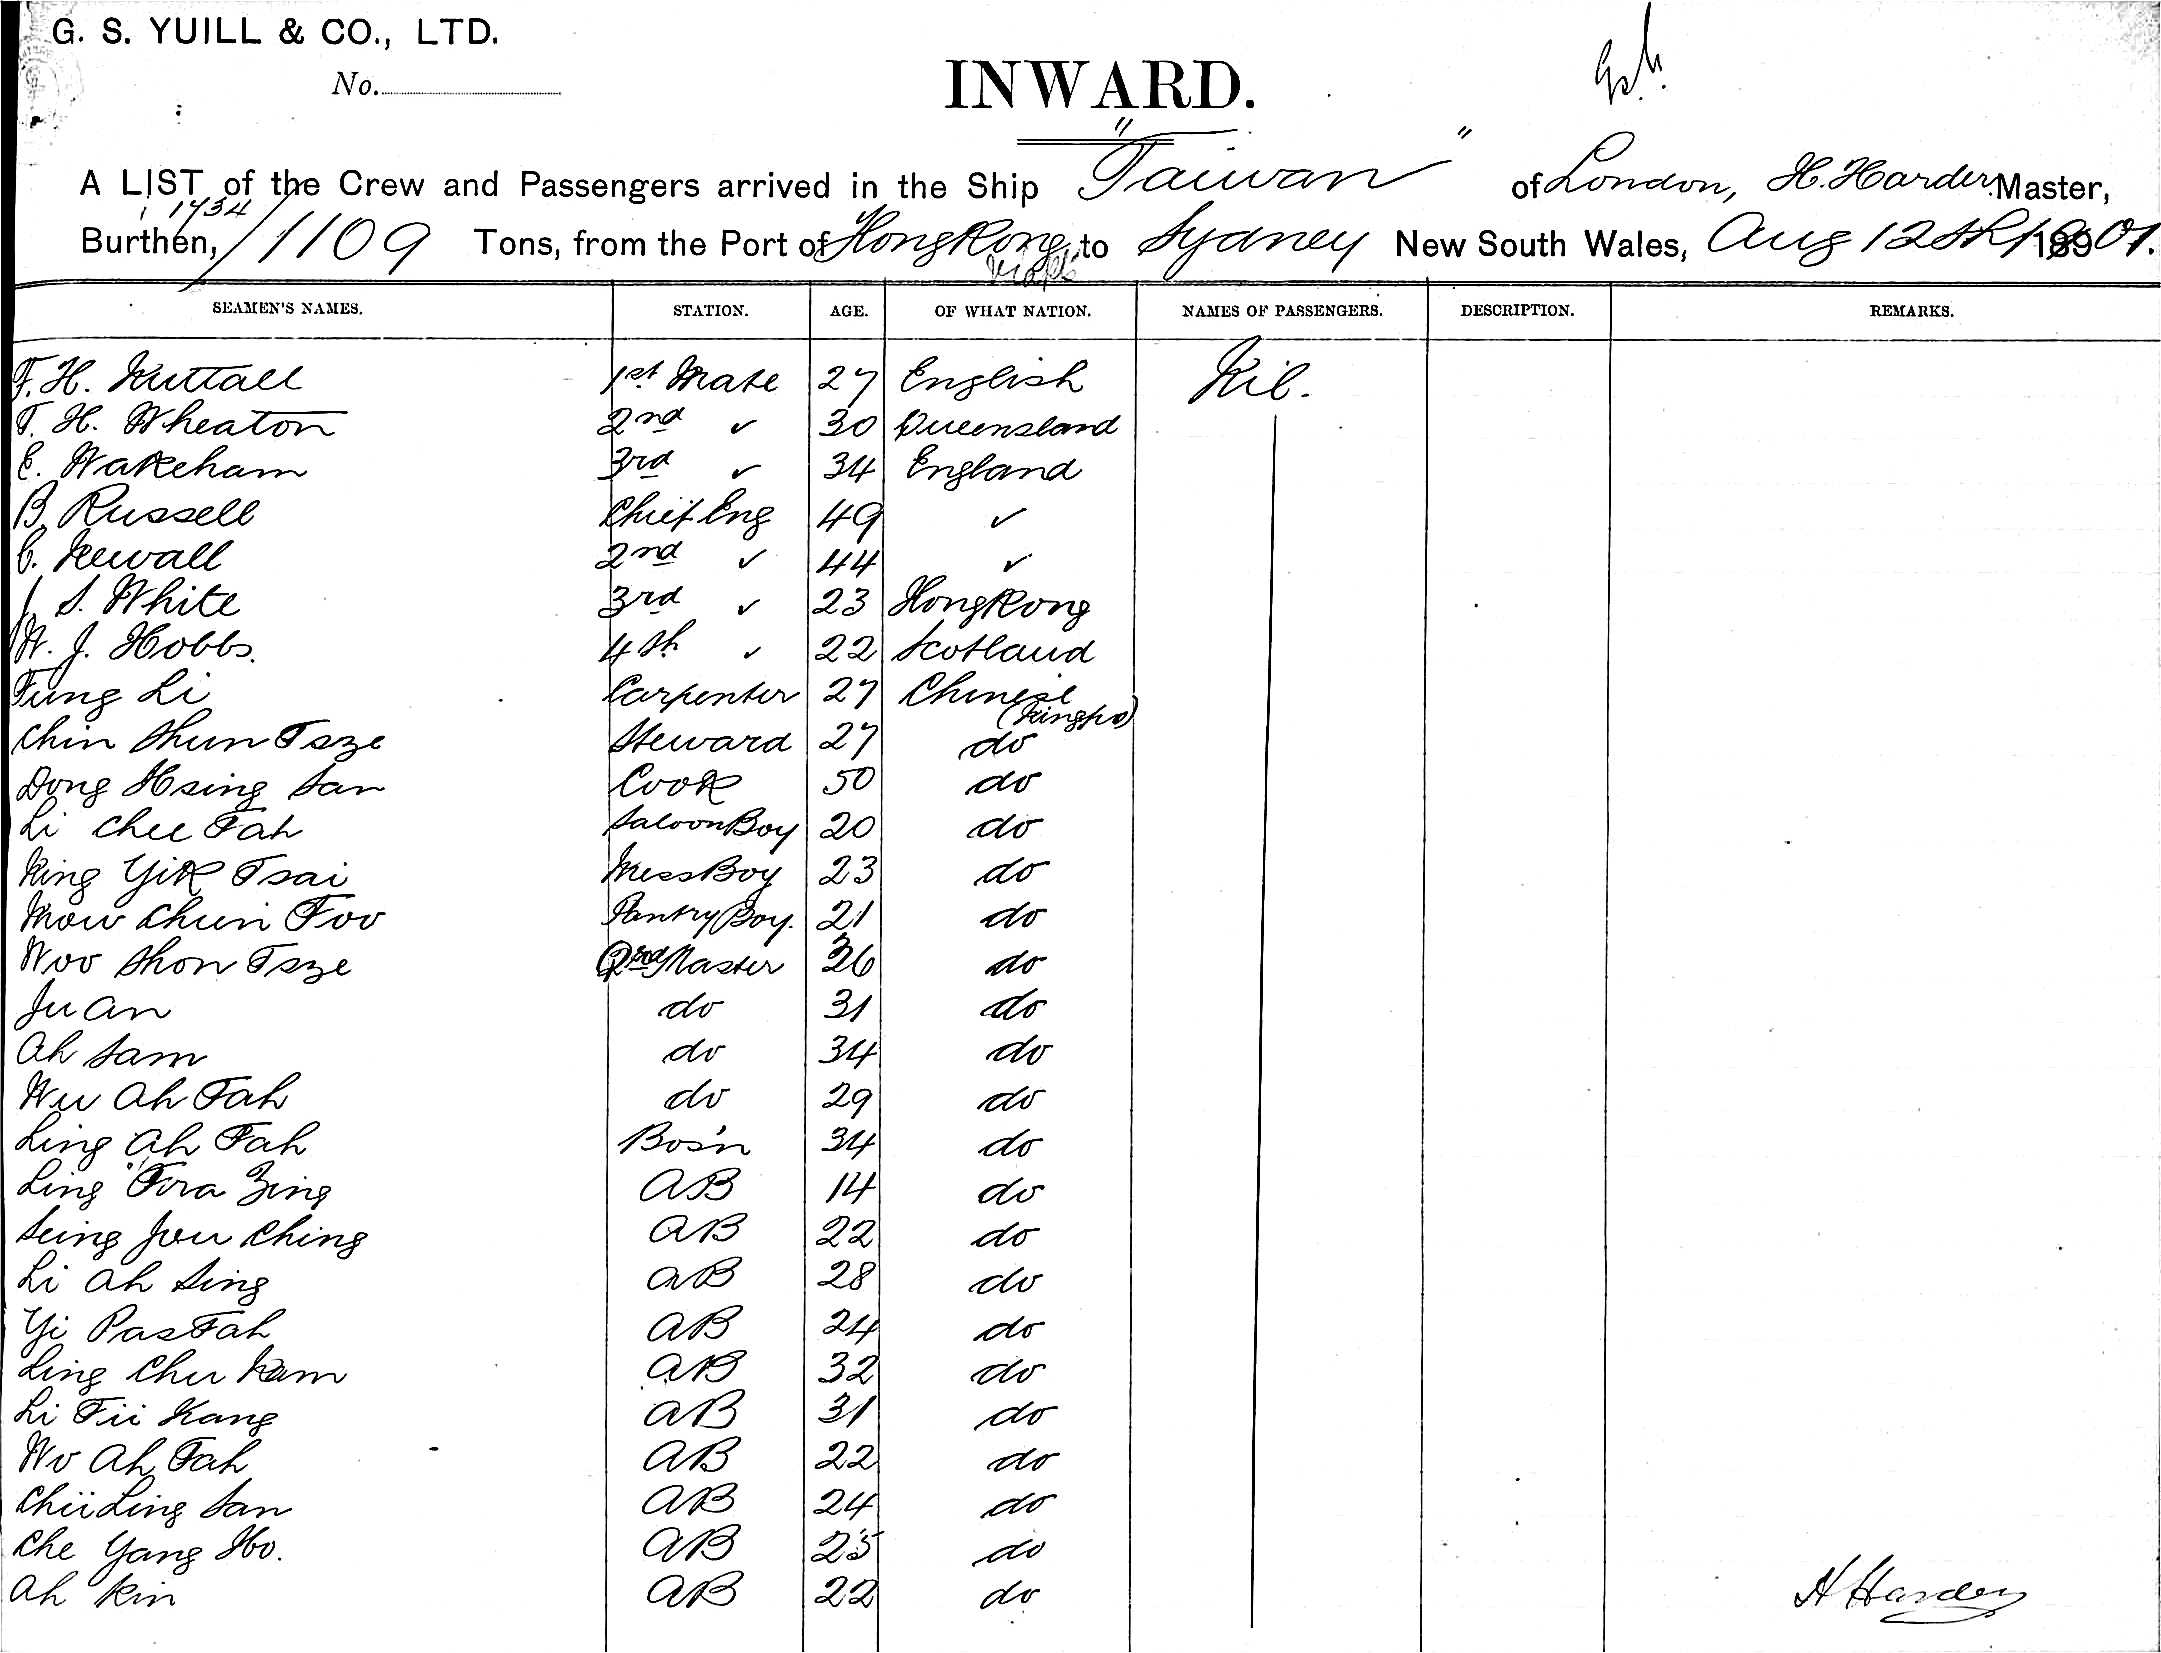 G. S. YUILL & CO., LTD.
No.
INWARD.
A LIST of the Crew and Passengers arrived in the Ship "Taiwan" of London, H. Harder Master,
1734
Burthen, /1109 Tons, from the Port of HongKong to Sydney New South Wales, Aug 12th 1901.
SEAMEN'S NAMES. STATION. AGE. OF WHAT NATION. NAMES OF PASSENGERS. DESCRIPTION. REMARKS.
F. H. Nuttall 1st Mate 27 English Nil.
T. H. Wheaton 2nd " 30 Queensland
E. Wakeham 3rd " 34 England
B. Russell Chief Eng 49 "
C. Newall 2nd " 44 "
J. S. White 3rd " 23 HongKong
W. J. Hobbs. 4th " 22 Scotland
Fung Li Carpenter 27 Chinese
(Ningpo)
Chin Shun Tsze Steward 27 do
Dong Hsing San Cook 50 do
Li Chee Fah Saloon Boy 20 do
King Yik Tsai Mess Boy 23 do
Mow Chun Foo Pantry Boy. 21 do
Woo Shon Tsze Master 26 do
Ju An do 31 do
Ah Sam do 34 do
Wu Ah Fah do 29 do
Ling Ah Fah Bos'n 34 do
Ling Zing AB 14 do
Seing Jou Ching AB 22 do
Li Ah Sing AB 28 do
Yi Pas Fah AB 24 do
Ling Chu Kam AB 32 do
Li Fii Kang AB 31 do
Wo Ah Fah AB 22 do
Chii Ling San AB 24 do
Che Yang Ho. AB 25 do
Ah Kin AB 22 do
H Harder